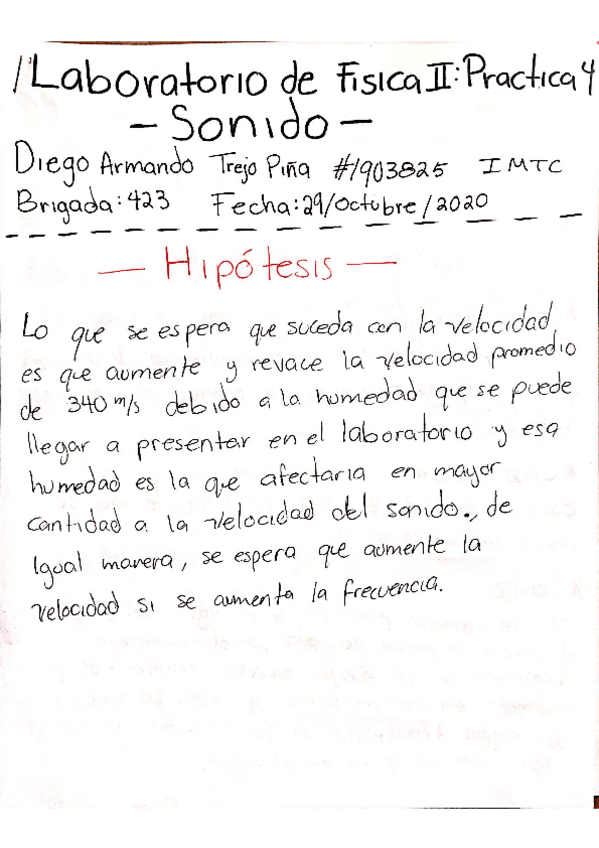 Laboratorio de Fisica II: Practica 4
- Sonido -
Diego Armando Trejo Piña #1903825 IMTC
Brigada: 423 Fecha: 29/Octubre/2020
- Hipótesis -
Lo que se espera que suceda con la velocidad,
es que aumente y revace la velocidad promedio
de 340 m/s debido a la humedad que se puede
llegar a presentar en el laboratorio y esa
humedad es la que afectaria en mayor
cantidad a la velocidad del sonido., de
igual manera, se espera que aumente la
velocidad si se aumenta la frecuencia.